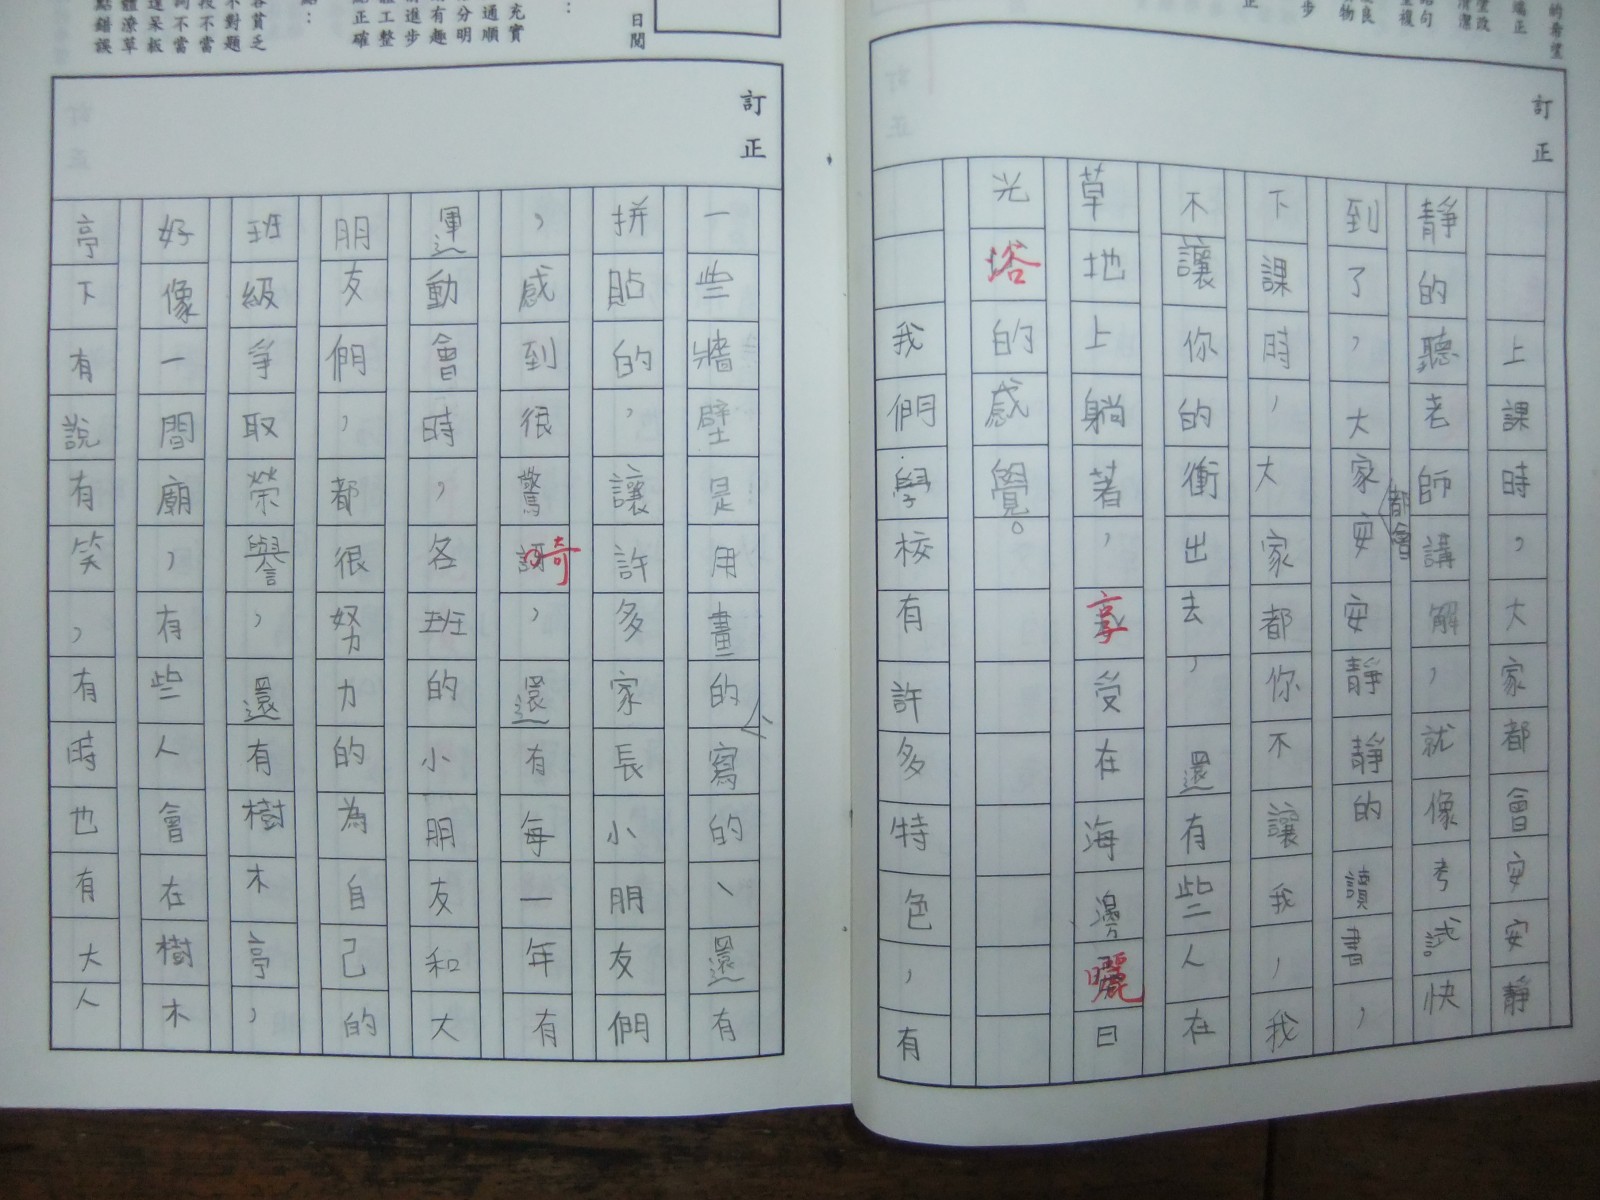 的希望
訂正
上課時，大家都會安安靜
靜的聽老師講解，就像考試快
到了，大家都會安安靜靜的讀書，
下課時，大家都你不讓我，我
不讓你的衝出去，還有些人在
草地上躺著，享受在海邊曬日
光浴的感覺。
我們學校有許多特色，有
日閱
訂正
一些牆壁是用畫的、寫的、還有
拼貼的，讓許多家長小朋友們
，感到很驚奇，還有每一年有
運動會時，各班的小朋友和大
朋友們，都很努力的為自己的
班級爭取榮譽，還有樹木亭，
好像一間廟，有些人會在樹木
亭下有說有笑，有時也有大人